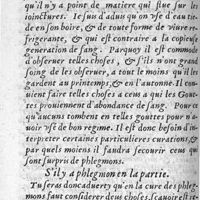 qu'il n'y a point de matiere qui flue sur les
ioinctures. Ie suis d'aduis qu'on vse d'eau tie-
de en son boire, & de toute forme de viure re-
frigerante, & qui est contraire à la copieuse
generation de sang. Parquoy il est commode
d'obseruer telles choses, & s'ils n'ont grand
soing de les obseruer, a tout le moins qu'il les
gardent au printemps, & en l'autonne. Il con-
uient faire telles choses a ceus a qui les Gout-
tes prouiennent d'abondance de sang. Pource
qu'aucuns tombent en telles gouttes pour n'a-
uoir vsé de bon regime. Il est donc besoin d'in-
terpreter certaines particulieres curations, &
par quels moiens il faudra secourir ceus qui
sont surpris de phlegmons.
S'il y a phlegmon en la partie.
Tu seras doncaduerty qu'en la cure des phleg-
mons faut considerer deux choses, sçauoir est